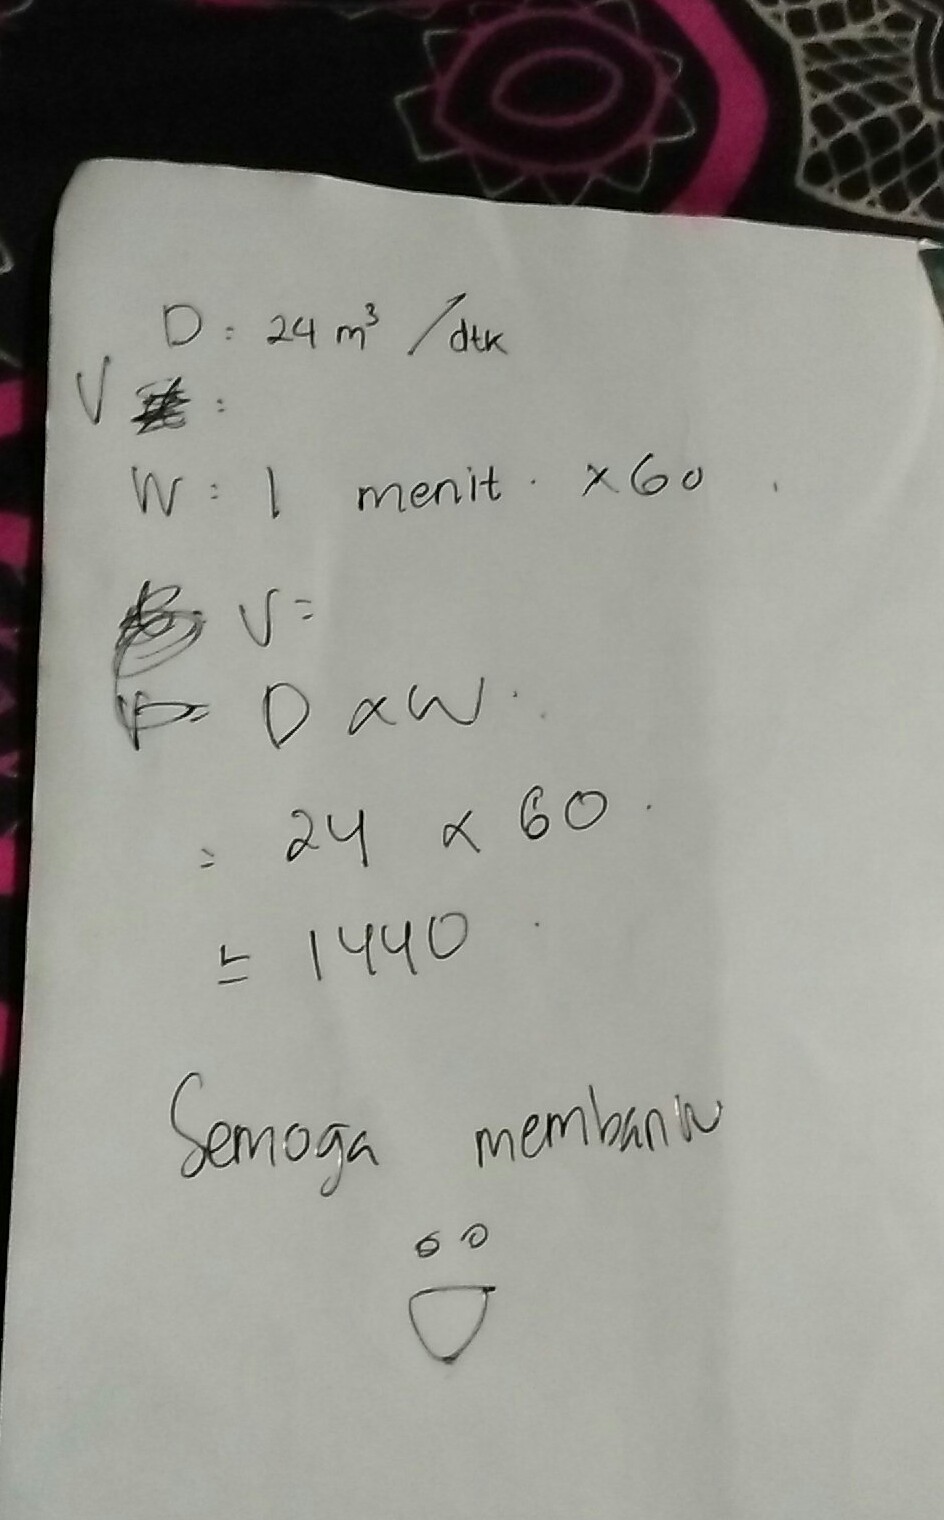 D : 24 m³ /dtk
V :
W : 1 menit . x 60 .
V =
= D x W .
= 24 x 60 .
= 1440 .
Semoga membantu